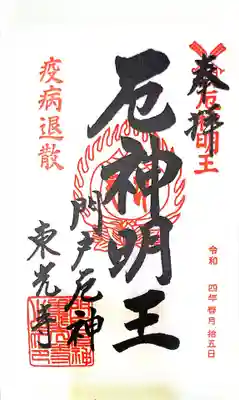 奉拝
厄神明王
令和 四年 五月 拾五日
厄神明王
門戸厄神
東光寺
疫病退散